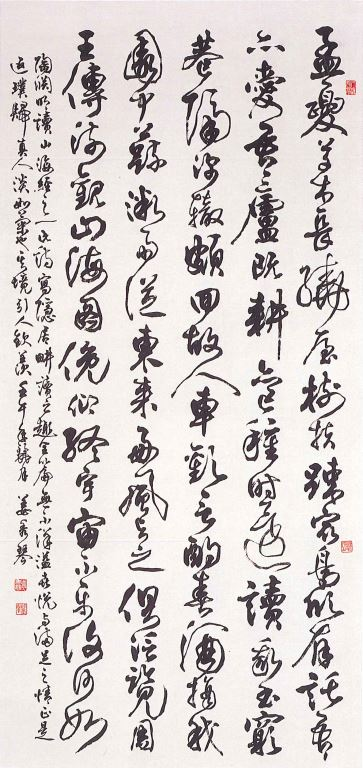 孟夏草木長繞屋樹扶疎眾鳥欣有託吾
亦愛吾廬既耕亦已種時還讀我書窮
巷隔深轍頗回故人車歡言酌春酒摘我
園中蔬微雨從東來好風與之俱泛覽周
王傳流觀山海圖俯仰終宇宙不樂復何如
陶淵明讀山海經之一此詩寫隱居耕讀之趣全篇無不洋溢喜悅與滿足之情正是
返璞歸真人淡如菊也其境引人欽羨壬午年